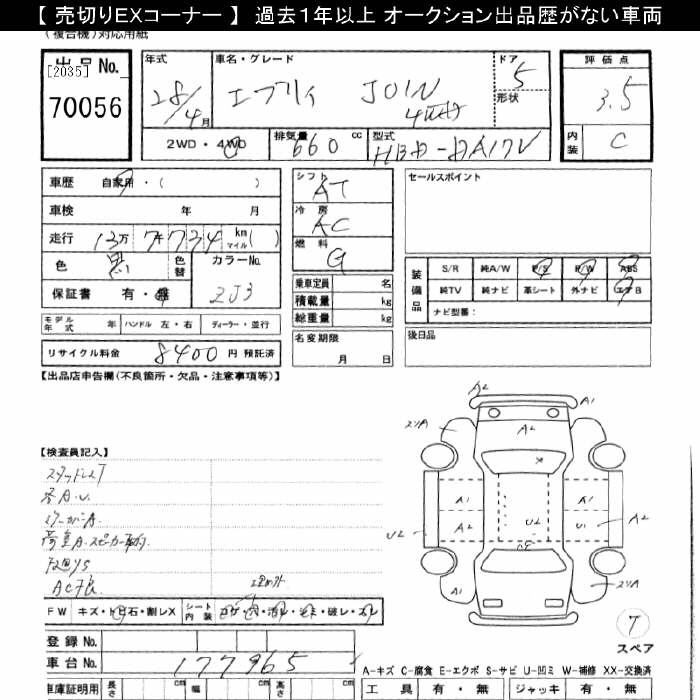 【 売切りEXコーナー 】 過去1年以上 オークション出品歴がない車両
(複合機)対応用紙
出品No.
[2035]
70056
年式
28/4月
車名・グレード
エブリィ JOIN
4WD
ドア
5
形状
評価点
3.5
2WD・4WD
排気量
660 cc
型式
HBD-DA17V
内装
C
車歴 自家用・( )
車検 年 月
走行 13万 7千 7 3 4 km マイル( )
色 黒 色替
カラーNo.
ZJ3
保証書 有・無
シフト
AT
冷房
AC
燃料
G
乗車定員 名
積載量 kg
総重量 kg
名変期限
月 日
セールスポイント
装備品
S/R 純A/W P/S P/W ABS
純TV 純ナビ 革シート 外ナビ エアB
ナビ型番:
後日品
モデル年式 年 ハンドル 左・右 ディーラー・並行
リサイクル料金 8400 円 預託済
【出品店申告欄(不良箇所・欠品・注意事項等)】
【検査員記入】
スタッドレス7
各A.U.
下廻りS
AC不良
FW キズ・トビ石・割レX
シート内装
コゲ・穴・汚レ・シミ・破レ・スレ
登録No.
車台No.
177965
車庫証明用 長さ cm 幅 cm 高さ cm
A2
A1
A2
A1
A2
A1
A2
U2
U2
U1
A2
A1
7
スペア
A-キズ C-腐食 E-エクボ S-サビ U-凹ミ W-補修 XX-交換済
工具 有・無 ジャッキ 有・無